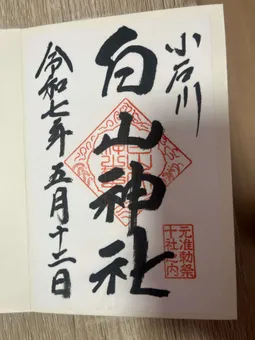 小石川
白山神社
元准勅祭
十社之内
令和七年五月十二日